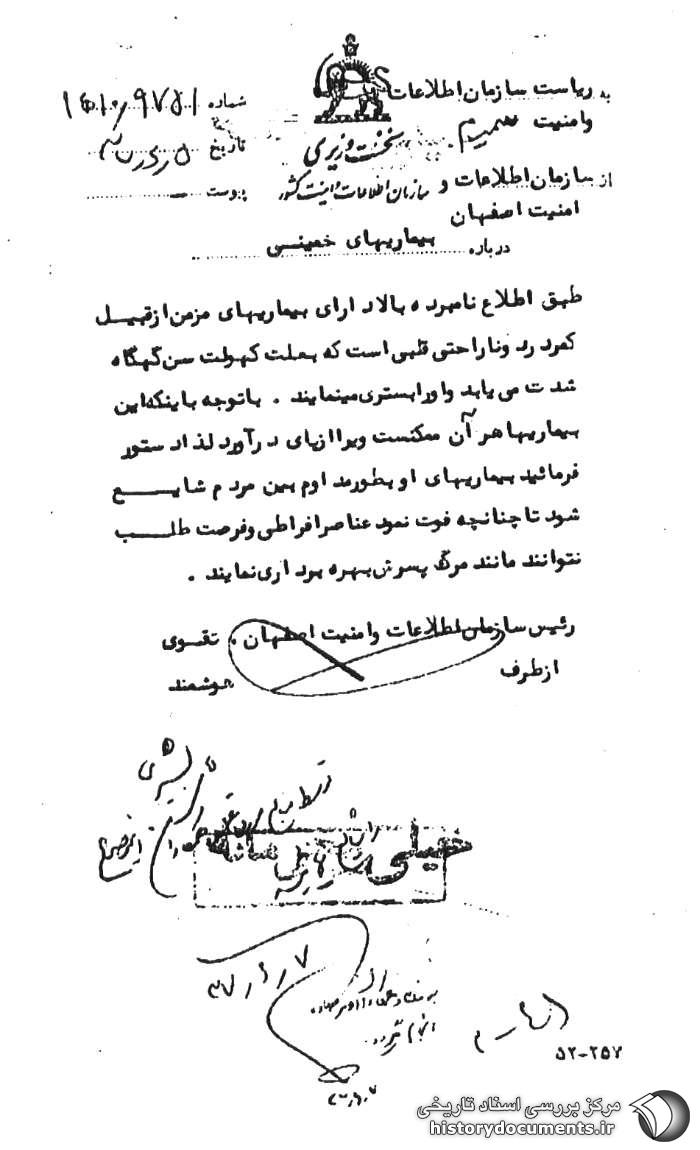 به ریاست سازمان اطلاعات
و امنیت
نخست وزیری
سازمان اطلاعات و امنیت کشور
شماره ۱۵۱۰٫۹۷۵۱
تاریخ
پیوست
از سازمان اطلاعات و
امنیت اصفهان
درباره بیماریهای خمینی
طبق اطلاع نامبرده بالا دارای بیماریهای مزمن از قبیل
کمردرد و ناراحتی قلبی است که بعلت کهولت سن گهگاه
شدت می یابد و او را بستری مینمایند . با توجه باینکه این
بیماریها هر آن ممکنست ویرا از پای درآورد لذا دستور
فرمائید بیماریهای او بطور مداوم بین مردم شایع
شود تا چنانچه فوت نمود عناصر افراطی و فرصت طلب
نتوانند مانند مرگ پسرش بهره برداری نمایند .
رئیس سازمان اطلاعات و امنیت اصفهان . تقوی
از طرف هوشمند
توسط
خیلی
۳۷٫۶٫۷
انجام گردد
۵۲-۲۵۷
مرکز بررسی اسناد تاریخی
historydocuments.ir